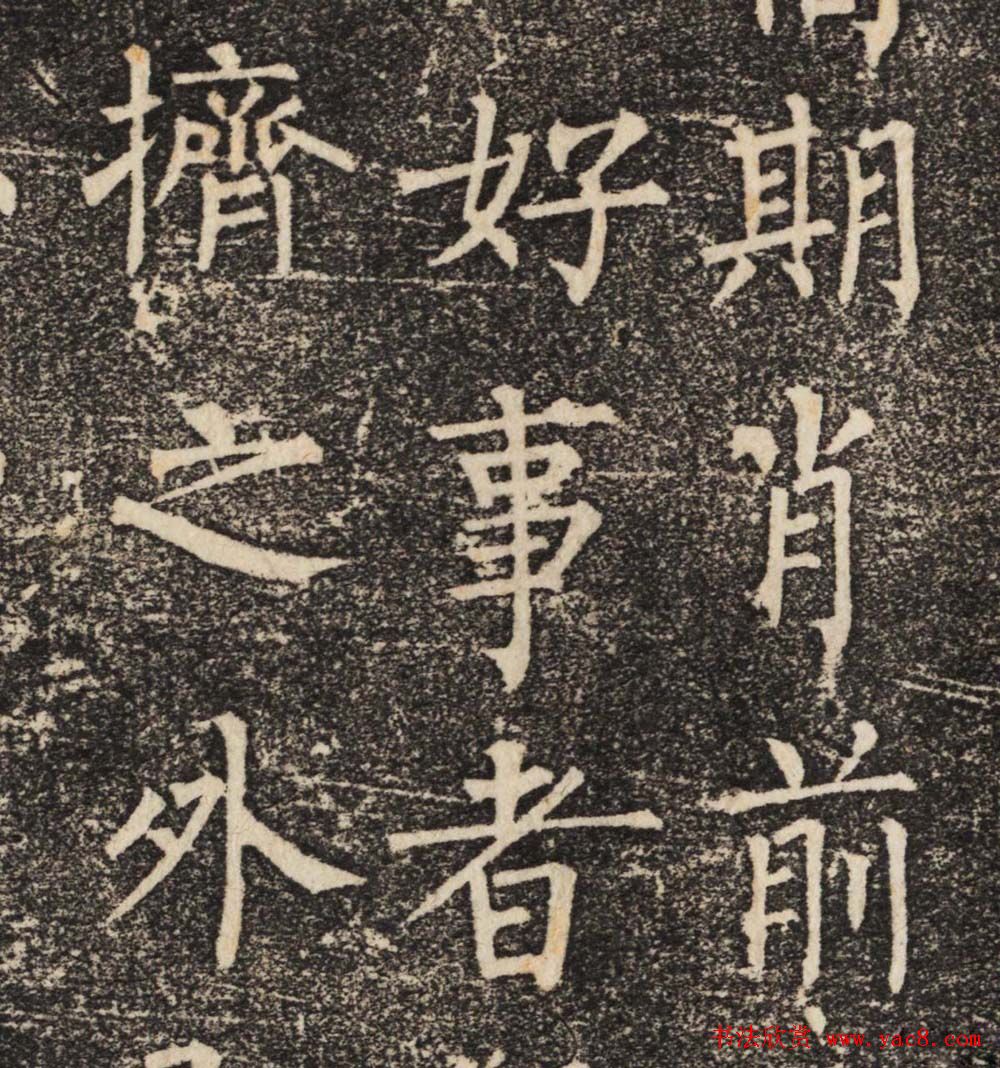 期肖前
好事者
擠之外
书法欣赏 www.yac8.com